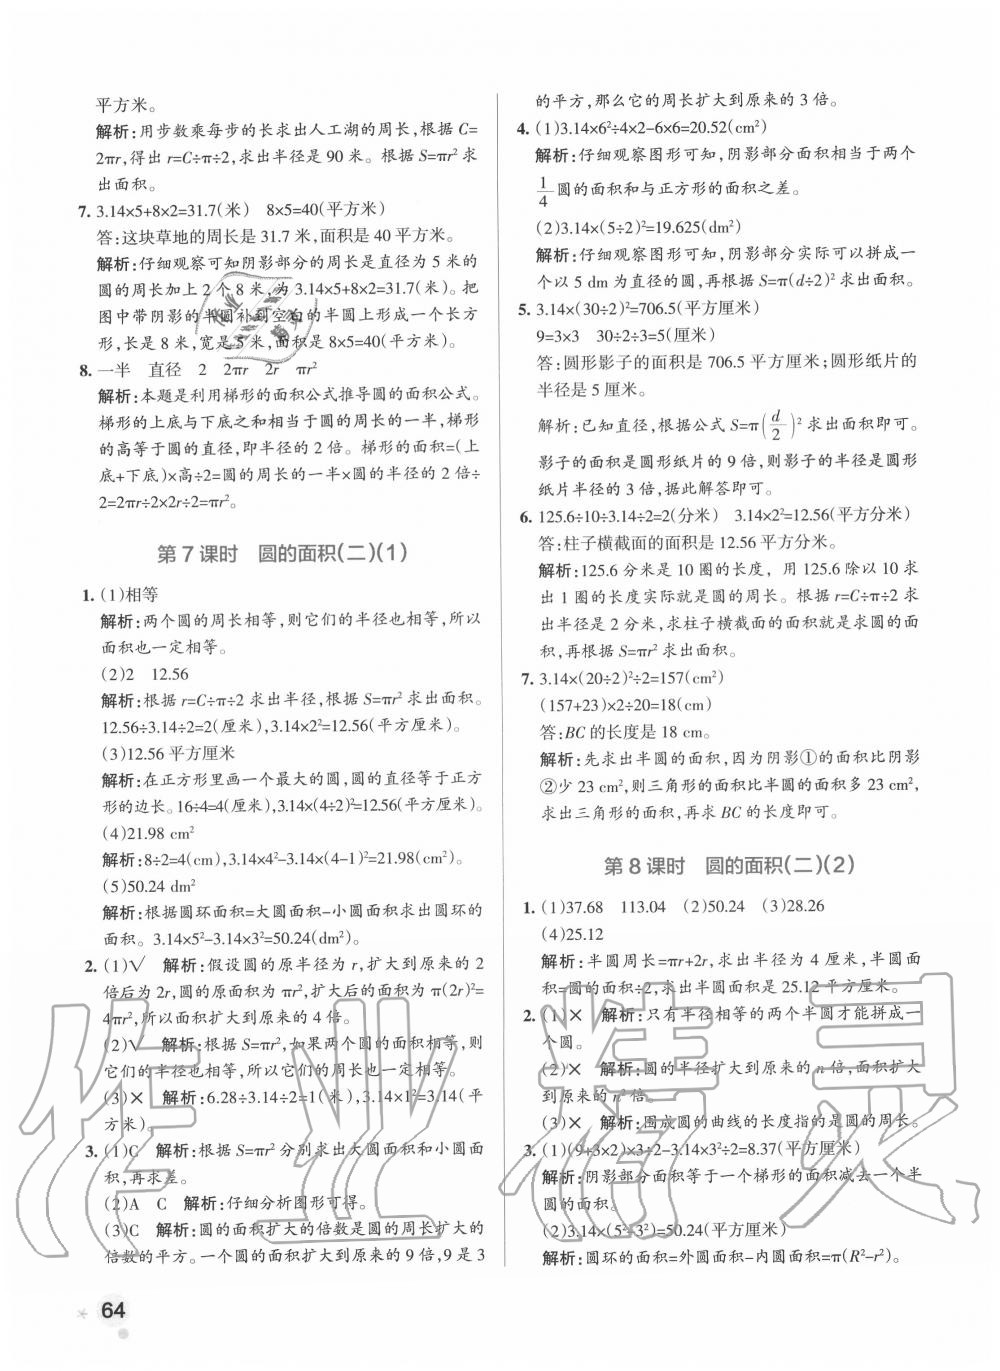 平方米。
解析:用步数乘每步的长求出人工湖的周长,根据 C=
2πr,得出 r=C÷π÷2,求出半径是 90 米。根据 S=πr²求
出面积。
7. 3.14×5+8×2=31.7(米)　8×5=40(平方米)
答:这块草地的周长是 31.7 米,面积是 40 平方米。
解析:仔细观察可知阴影部分的周长是直径为 5 米的
圆的周长加上 2 个 8 米,为 3.14×5+8×2=31.7(米)。把
图中带阴影的半圆补到空白的半圆上形成一个长方
形,长是 8 米,宽是 5 米,面积是 8×5=40(平方米)。
8. 一半　直径　2　2πr　2r　πr²
解析:本题是利用梯形的面积公式推导圆的面积公式。
梯形的上底与下底之和相当于圆的周长的一半,梯形
的高等于圆的直径,即半径的 2 倍。梯形的面积=(上
底+下底)×高÷2=圆的周长的一半×圆的半径的 2 倍÷
2=2πr÷2×2r÷2=πr²。
第 7 课时　圆的面积(二)(1)
1. (1)相等
解析:两个圆的周长相等,则它们的半径也相等,所以
面积也一定相等。
(2)2　12.56
解析:根据 r=C÷π÷2 求出半径,根据 S=πr² 求出面积。
12.56÷3.14÷2=2(厘米),3.14×2²=12.56(平方厘米)。
(3)12.56 平方厘米
解析:在正方形里画一个最大的圆,圆的直径等于正方
形的边长。16÷4=4(厘米),3.14×(4÷2)²=12.56(平方厘米)。
(4)21.98 cm²
解析:8÷2=4(cm),3.14×4²-3.14×(4-1)²=21.98(cm²)。
(5)50.24 dm²
解析:根据圆环面积=大圆面积-小圆面积求出圆环的
面积。3.14×5²-3.14×3²=50.24(dm²)。
2. (1)√　解析:假设圆的原半径为 r,扩大到原来的 2
倍后为 2r,圆的原面积为 πr²,扩大后的面积为 π(2r)²=
4πr²,所以面积扩大到原来的 4 倍。
(2)√　解析:根据 S=πr²,如果两个圆的面积相等,则
它们的半径也相等,所以它们的周长也一定相等。
(3)×　解析:6.28÷3.14÷2=1(米),3.14×1²=3.14(平
方米)。
3. (1)C　解析:根据 S=πr²分别求出大圆面积和小圆面
积,再求差。
(2)A　C　解析:仔细分析图形可得。
(3)C　解析:圆的面积扩大的倍数是圆的周长扩大的
倍数的平方。一个圆的面积扩大到原来的 9 倍,9 是 3
64
的平方,那么它的周长扩大到原来的 3 倍。
4. (1)3.14×6²÷4×2-6×6=20.52(cm²)
解析:仔细观察图形可知,阴影部分面积相当于两个
1/4 圆的面积和与正方形的面积之差。
(2)3.14×(5÷2)²=19.625(dm²)
解析:仔细观察图形可知,阴影部分实际可以拼成一
个以 5 dm 为直径的圆,再根据 S=π(d÷2)² 求出面积。
5. 3.14×(30÷2)²=706.5(平方厘米)
9=3×3　30÷2÷3=5(厘米)
答:圆形影子的面积是 706.5 平方厘米;圆形纸片的
半径是 5 厘米。
解析:已知直径,根据公式 S=π(d/2)² 求出面积即可。
影子的面积是圆形纸片的 9 倍,则影子的半径是圆形
纸片半径的 3 倍,据此解答即可。
6. 125.6÷10÷3.14÷2=2(分米)　3.14×2²=12.56(平方分米)
答:柱子横截面的面积是 12.56 平方分米。
解析:125.6 分米是 10 圈的长度, 用 125.6 除以 10 求
出 1 圈的长度实际就是圆的周长。根据 r=C÷π÷2 求
出半径是 2 分米,求柱子横截面的面积就是求圆的面
积,再根据 S=πr² 求出面积。
7. 3.14×(20÷2)²÷2=157(cm²)
(157+23)×2÷20=18(cm)
答:BC 的长度是 18 cm。
解析:先求出半圆的面积,因为阴影①的面积比阴影
②少 23 cm²,则三角形的面积比半圆的面积多 23 cm²,
求出三角形的面积,再求 BC 的长度即可。
第 8 课时　圆的面积(二)(2)
1. (1)37.68　113.04　(2)50.24　(3)28.26
(4)25.12
解析:半圆周长=πr+2r,求出半径为 4 厘米,半圆面
积=圆的面积÷2,求出半圆面积是 25.12 平方厘米。
2. (1)×　解析:只有半径相等的两个半圆才能拼成一
个圆。
(2)×　解析:圆的半径扩大到原来的 n 倍,面积扩大
到原来的 n² 倍。
(3)×　解析:围成圆的曲线的长度指的是圆的周长。
3. (1)(9+3×2)×3÷2-3.14×3²÷2=8.37(平方厘米)
解析:阴影部分面积等于一个梯形的面积减去一个半
圆的面积。
(2)3.14×(5²-3²)=50.24(平方厘米)
解析:圆环的面积=外圆面积-内圆面积=π(R²-r²)。
作业精灵